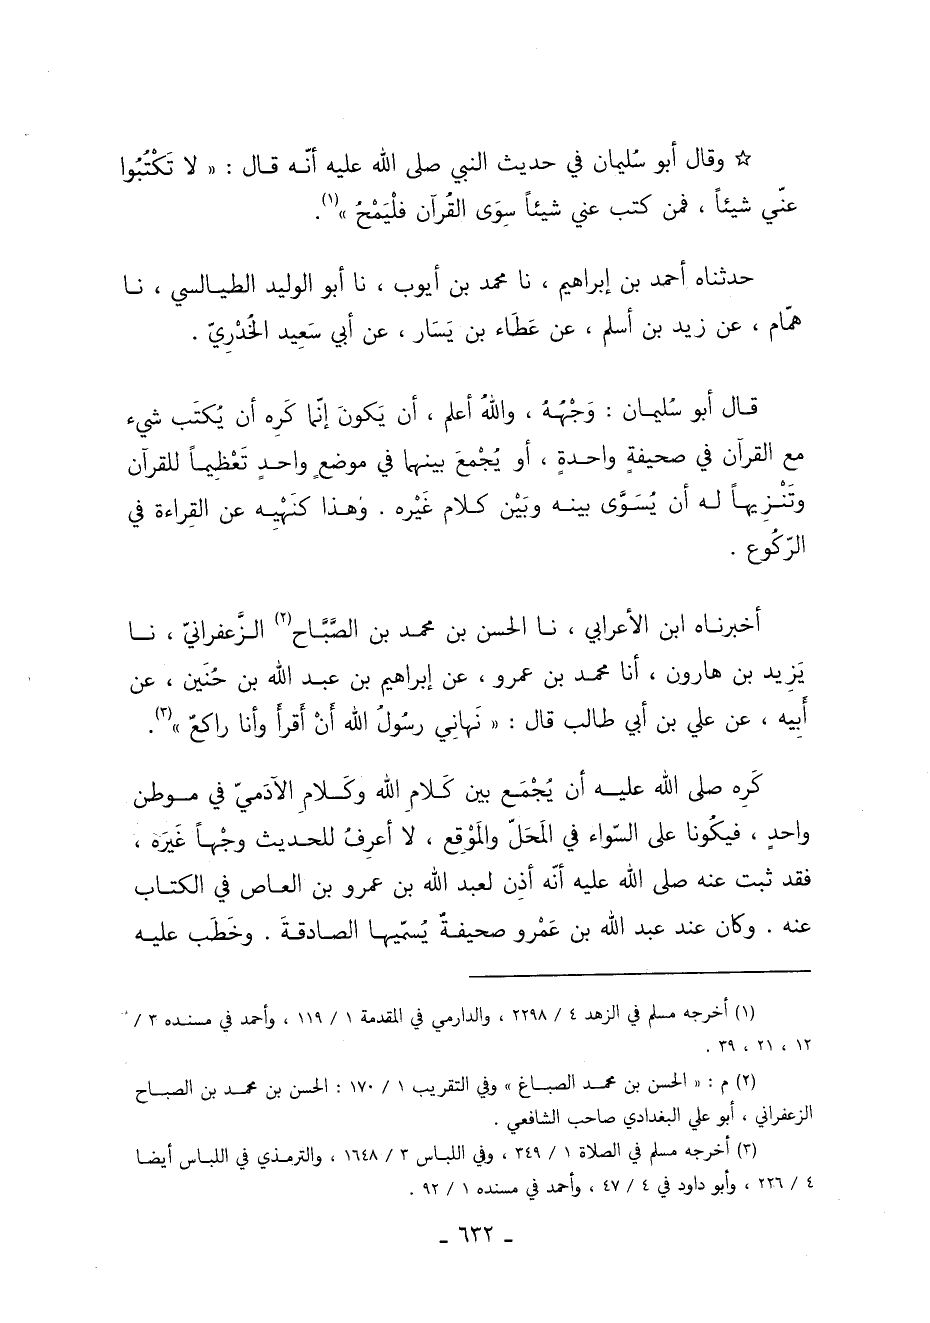 ☆ وقال أبو سُليمان في حديث النبي صلى الله عليه أنّـه قـال : « لا تَكْتُبُوا
عنّي شيئاً ، فمن كتب عني شيئاً سِوَى القُرآن فلْيَمْحُ »(١).
حدثناه أحمد بن إبراهيم ، نا محمد بن أيوب ، نا أبو الوليد الطيـالسي ، نـا
همّام ، عن زيد بن أسلم ، عن عَطَاء بن يَسَار ، عن أبي سَعِيد الخُدْريّ .
قـال أبو سُليمان : وَجْهُـهُ ، واللهُ أعلم ، أن يَكونَ إنّما كَرِه أن يُكتَب شيء
مع القرآن في صحيفةٍ واحدةٍ ، أو يُجْمعَ بينهما في موضعٍ واحـدٍ تَعْظيمـاً للقرآن
وتَنْـزيهـاً لـه أن يُسَـوَّى بينـه وبَيْن كـلام غَيْره . وهـذا كنَهْيِـه عن القراءة في
الرّكُوع .
أخبرنـاه ابن الأعرابي ، نـا الحسن بن محمد بن الصَّبَّاح(٢) الـزَّعفرانيّ ، نـا
يَزِيد بن هارون ، أنا محمـد بن عمرو ، عن إبراهيم بن عبـد الله بن حُنَين ، عن
أَبِيه ، عن علي بن أبي طالب قال : « نَهاني رسُولُ الله أَنْ أَقرأَ وأنا راكعٌ »(٣).
كَرِه صلى الله عليــه أن يُجْمَـع بين كَـلام الله وكَـلامِ الآدَميّ في مـوطن
واحدٍ ، فيكُونا على السّواء في المَحَلّ والمَوْقِع ، لا أعرفُ للحـديث وجْهـاً غَيْرَه ،
فقد ثبت عنه صلى الله عليه أنّه أذِن لعبد الله بن عمرو بن العـاص في الكتـاب
عنه . وكان عند عبد الله بن عَمْرو صحيفـةٌ يُسمّيهـا الصـادقـةَ . وخَطَب عليـه
(١) أخرجه مسلم في الزهد ٤ / ٢٢٩٨ ، والدارمي في المقدمة ١ / ١١٩ ، وأحمد في مسنده ٣ /
١٢ ، ٢١ ، ٣٩ .
(٢) م : « الحسن بن محمـد الصبـاغ » وفي التقريب ١ / ١٧٠ : الحسن بن محمـد بن الصبـاح
الزعفراني ، أبو علي البغدادي صاحب الشافعي .
(٣) أخرجه مسلم في الصلاة ١ / ٣٤٩ ، وفي اللباس ٣ / ١٦٤٨ ، والترمذي في اللبـاس أيضـا
٤ / ٢٢٦ ، وأبو داود في ٤ / ٤٧ ، وأحمد في مسنده ١ / ٩٢ .
ـ ٦٣٢ ـ